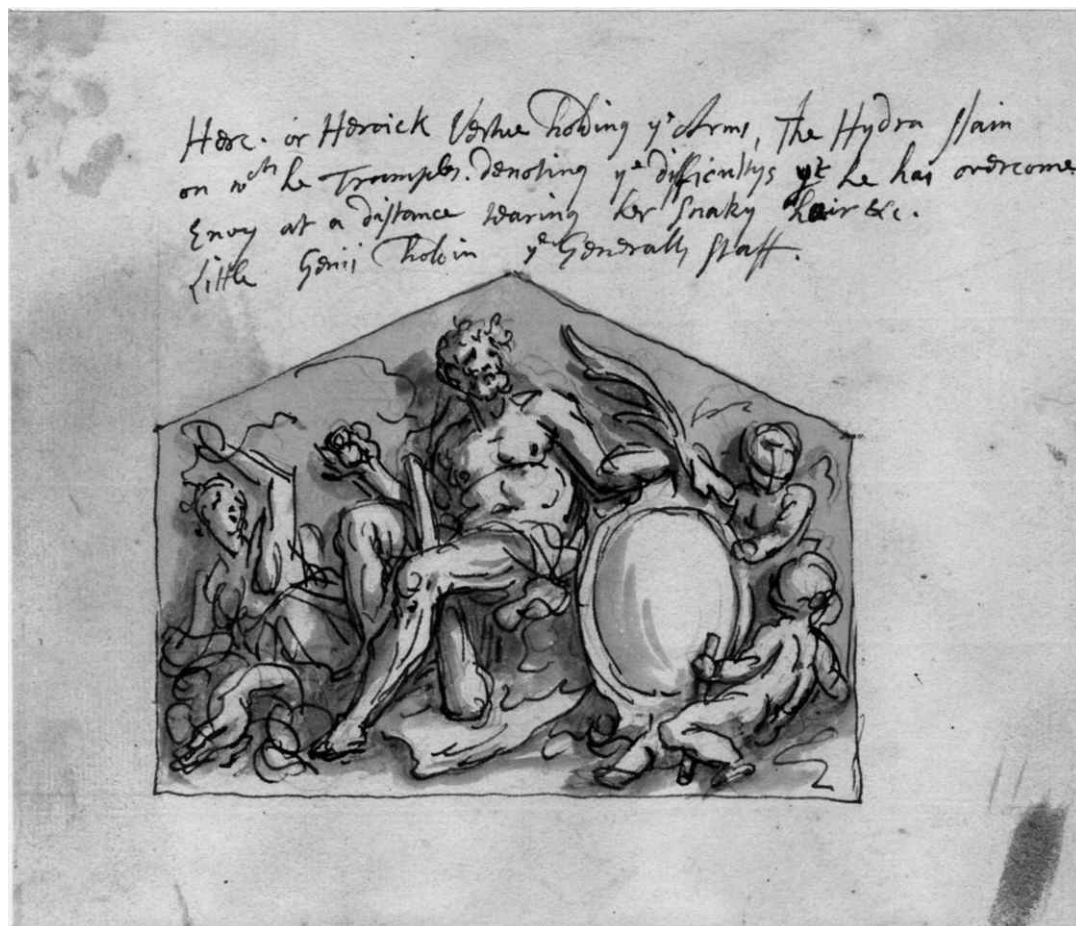 Herc. or Heroick Vertue holding yᵉ Arms, The Hydra slain
on wᶜʰ he Tramples. denoting yᵉ difficultys yᵗ he has overcome
Envy at a distance tearing her snaky hair &c.
Little Genii holdin yᵉ Generalls staff.